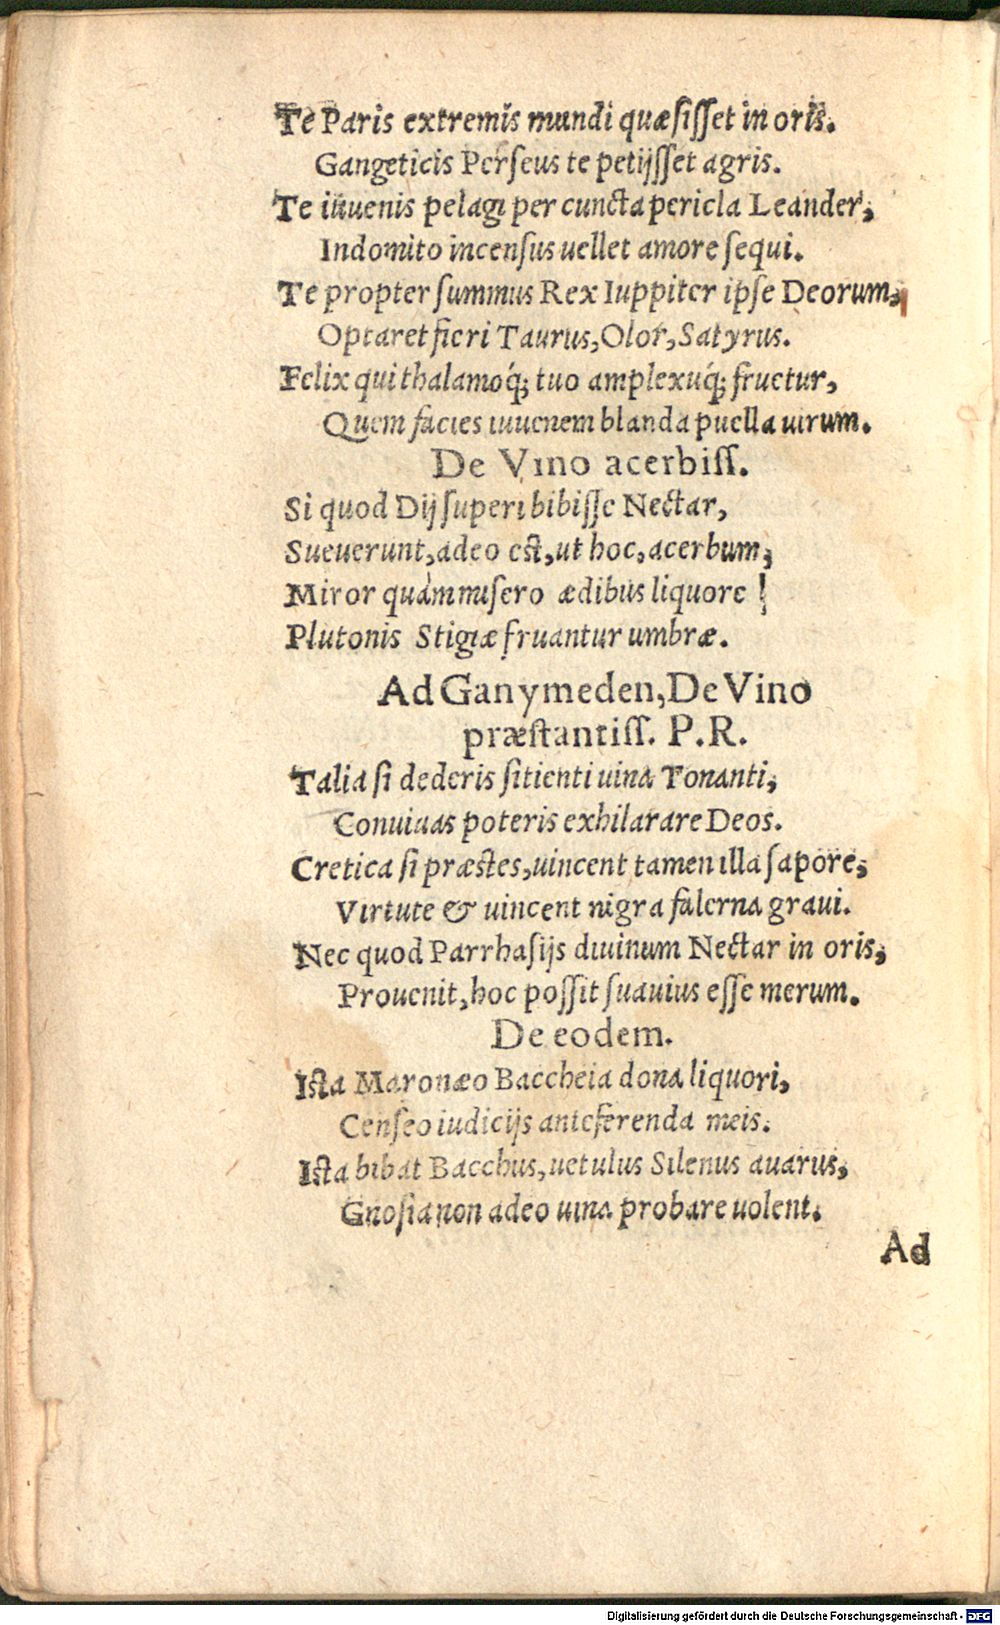 Te Paris extremis mundi quæsisset in oris.
Gangeticis Perseus te petijsset agris.
Te iuuenis pelagi per cuncta pericla Leander,
Indomito incensus uellet amore sequi.
Te propter summus Rex Iuppiter ipse Deorum,
Optaret fieri Taurus, Olor, Satyrus.
Felix qui thalamoq́; tuo amplexuq́; fruetur,
Quem facies iuuenem blanda puella uirum.
De Vino acerbiss.
Si quod Dij superi bibisse Nectar,
Sueuerunt, adeo est, ut hoc, acerbum,
Miror quàm misero ædibus liquore!
Plutonis Stigiæ fruantur umbræ.
Ad Ganymeden, De Vino
præstantiss. P.R.
Talia si dederis sitienti uina Tonanti,
Conuiuas poteris exhilarare Deos.
Cretica si præstes, uincent tamen illa sapore,
Virtute & uincent nigra falerna graui.
Nec quod Parrhasijs diuinum Nectar in oris,
Prouenit, hoc possit suauius esse merum.
De eodem.
Ista Maronæo Baccheia dona liquori,
Censeo iudicijs anteferenda meis.
Ista bibat Bacchus, uetulus Silenus auarus,
Gnosia non adeo uina probare uolent.
Ad
Digitalisierung gefördert durch die Deutsche Forschungsgemeinschaft - DFG